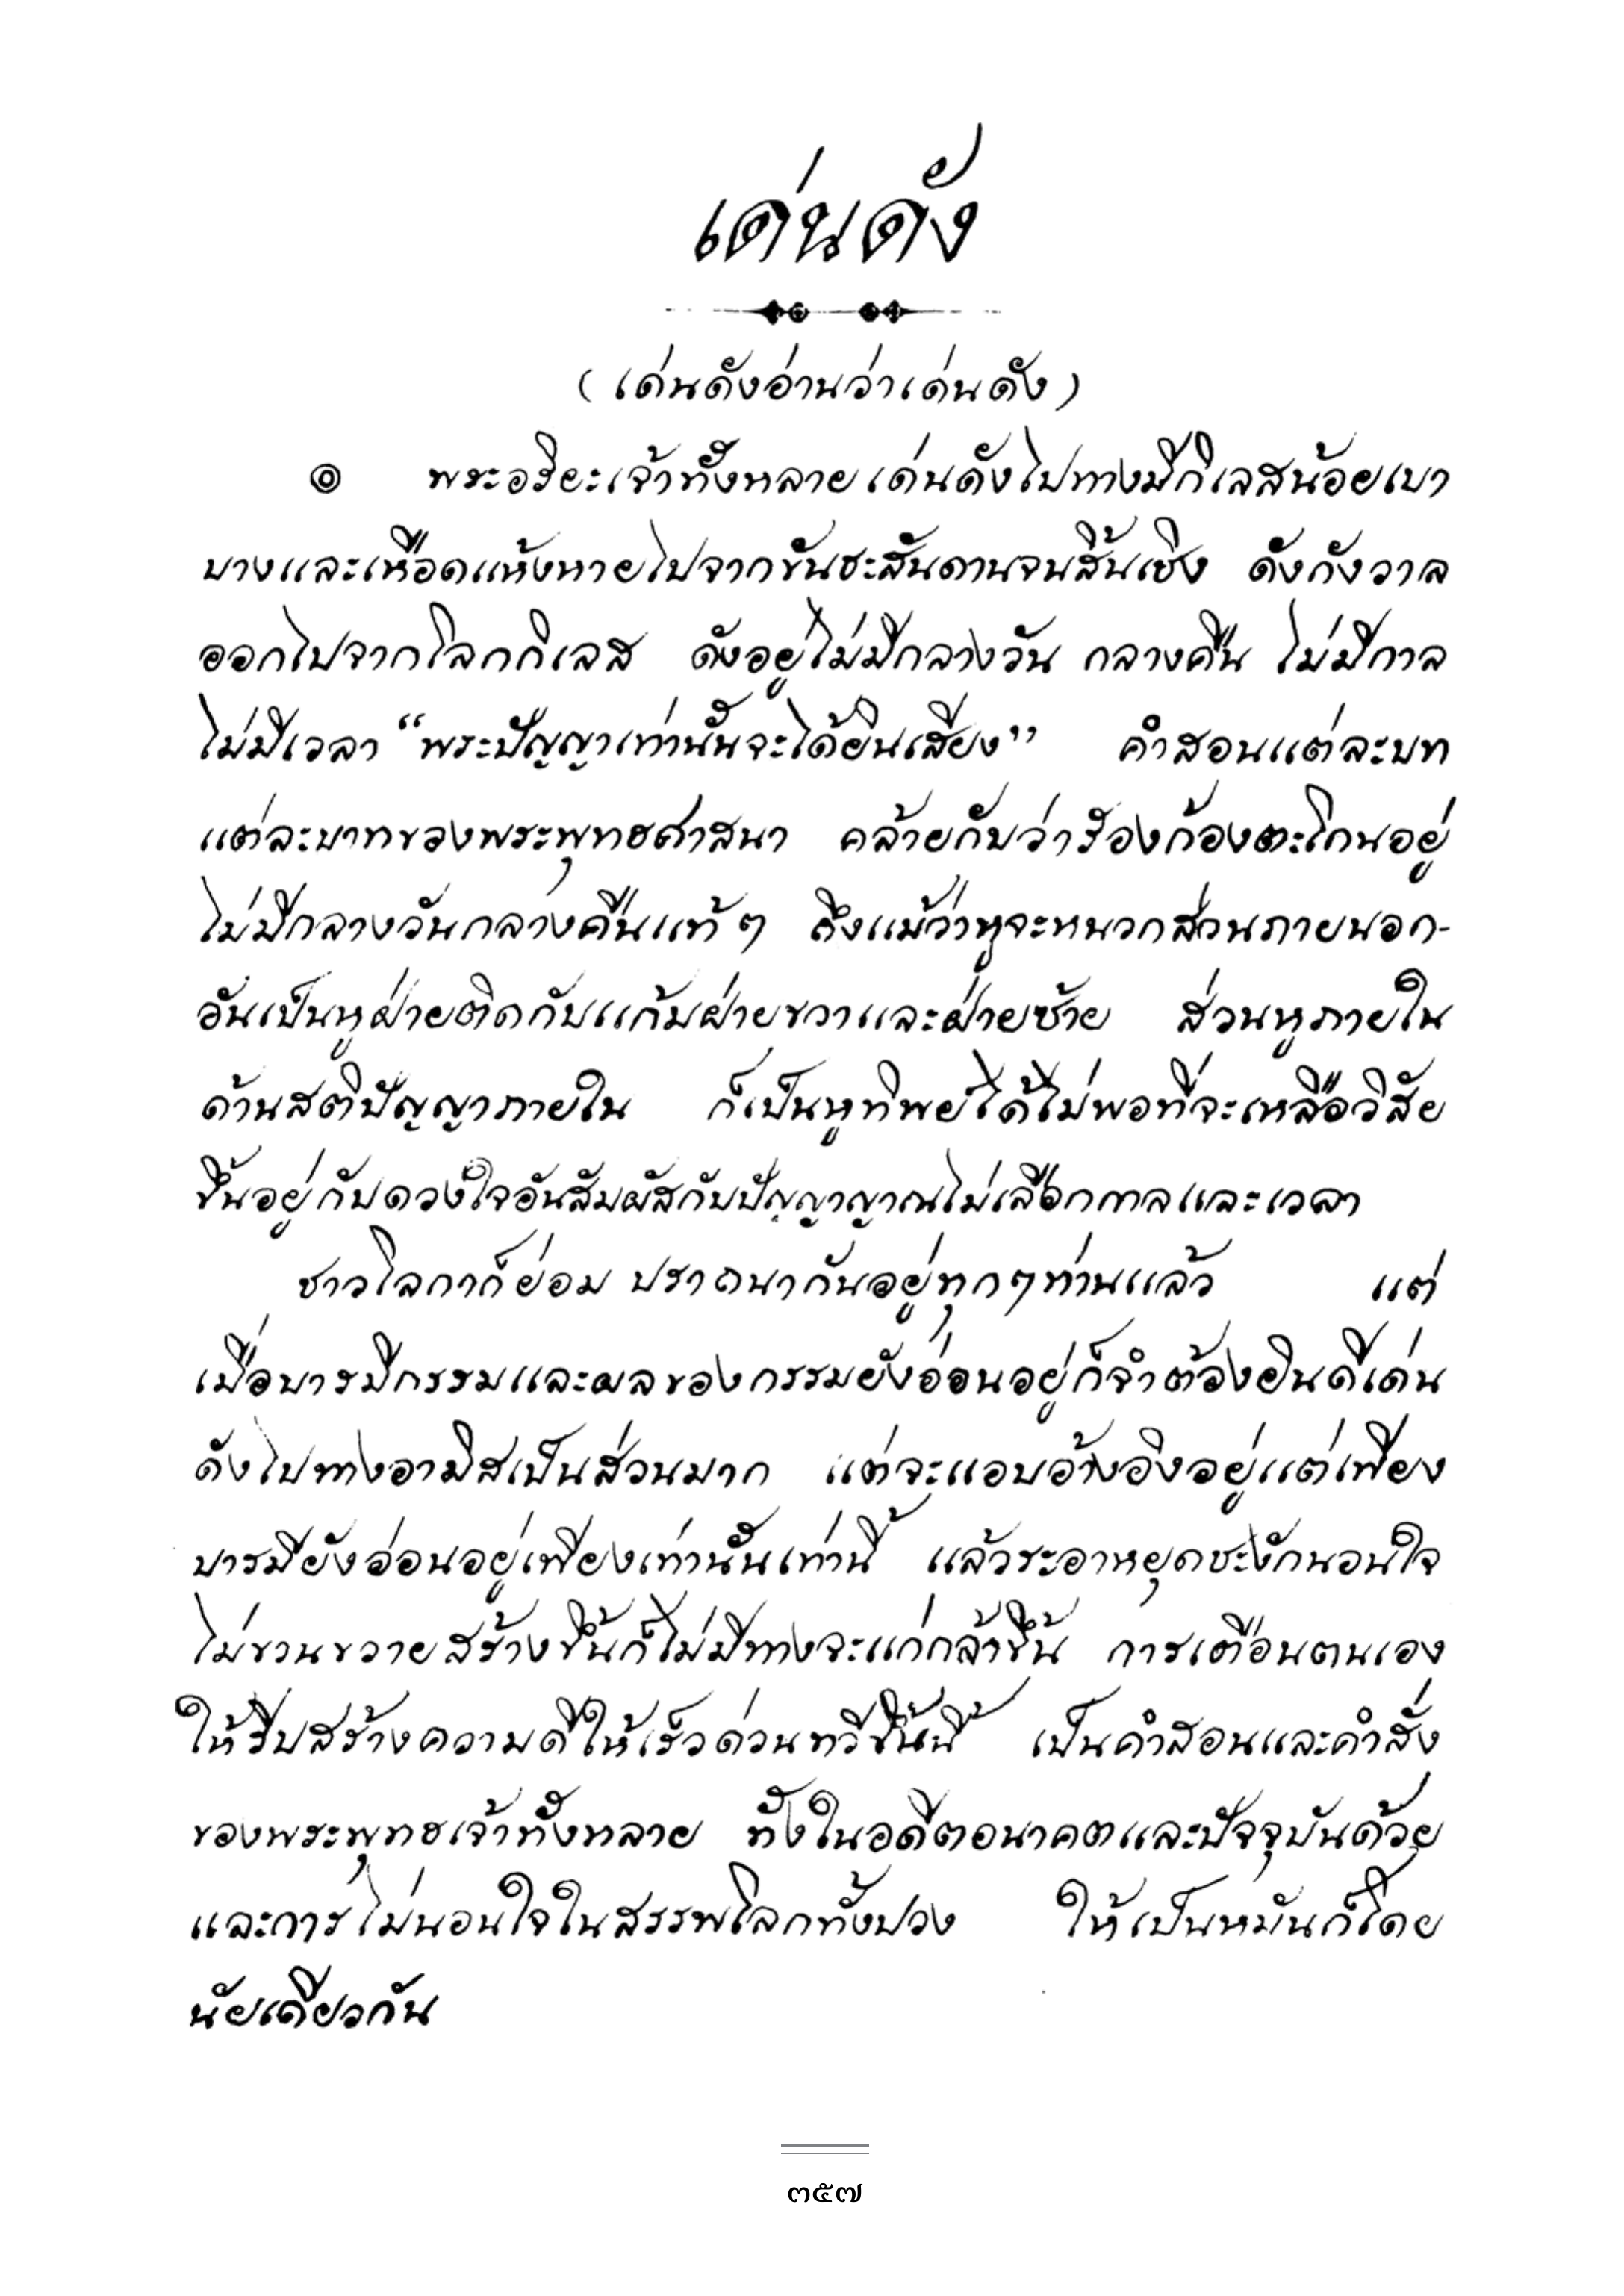 เด่นดัง
(เด่นดังอ่านว่าเด่นดัง)
๏ พระอริยะเจ้าทั้งหลายเด่นดังไปทางมีกิเลสน้อยเบา
บางและเหือดแห้งหายไปจากขันธะสันดานจนสิ้นเชิง ดังกังวาล
ออกไปจากโลกกิเลส ดังอยู่ไม่มีกลางวัน กลางคืน ไม่มีกาล
ไม่มีเวลา “พระปัญญาเท่านั้นจะได้ยินเสียง” คำสอนแต่ละบท
แต่ละบาทของพระพุทธศาสนา คล้ายกับว่าร้องก้องตะโกนอยู่
ไม่มีกลางวันกลางคืนแท้ๆ ถึงแม้ว่าหูจะหนวกส่วนภายนอก-
อันเป็นหูฝ่ายติดกับแก้มฝ่ายขวาและฝ่ายซ้าย ส่วนหูภายใน
ด้านสติปัญญาภายใน ก็เป็นหูทิพย์ได้ไม่พอที่จะเหลือวิสัย
ขึ้นอยู่กับดวงใจอันสัมผัสกับปัญญาญาณไม่เลือกกาลและเวลา
ชาวโลกาก็ย่อม ปราถนากันอยู่ทุกๆท่านแล้ว แต่
เมื่อบารมีกรรมและผลของกรรมยังอ่อนอยู่ก็จำต้องยินดีเด่น
ดังไปทางอามิสเป็นส่วนมาก แต่จะแอบอ้างอิงอยู่แต่เพียง
บารมียังอ่อนอยู่เพียงเท่านั้นเท่านี้ แล้วระอาหยุดชะงักนอนใจ
ไม่ขวนขวายสร้างขึ้นก็ไม่มีทางจะแก่กล้าขึ้น การเตือนตนเอง
ให้รีบสร้างความดีให้เร็วด่วนทวีขึ้นนี้ เป็นคำสอนและคำสั่ง
ของพระพุทธเจ้าทั้งหลาย ทั้งในอดีตอนาคตและปัจจุบันด้วย
และการไม่นอนใจในสรรพโลกทั้งปวง ให้เป็นหมันก็โดย
นัยเดียวกัน
๓๕๗